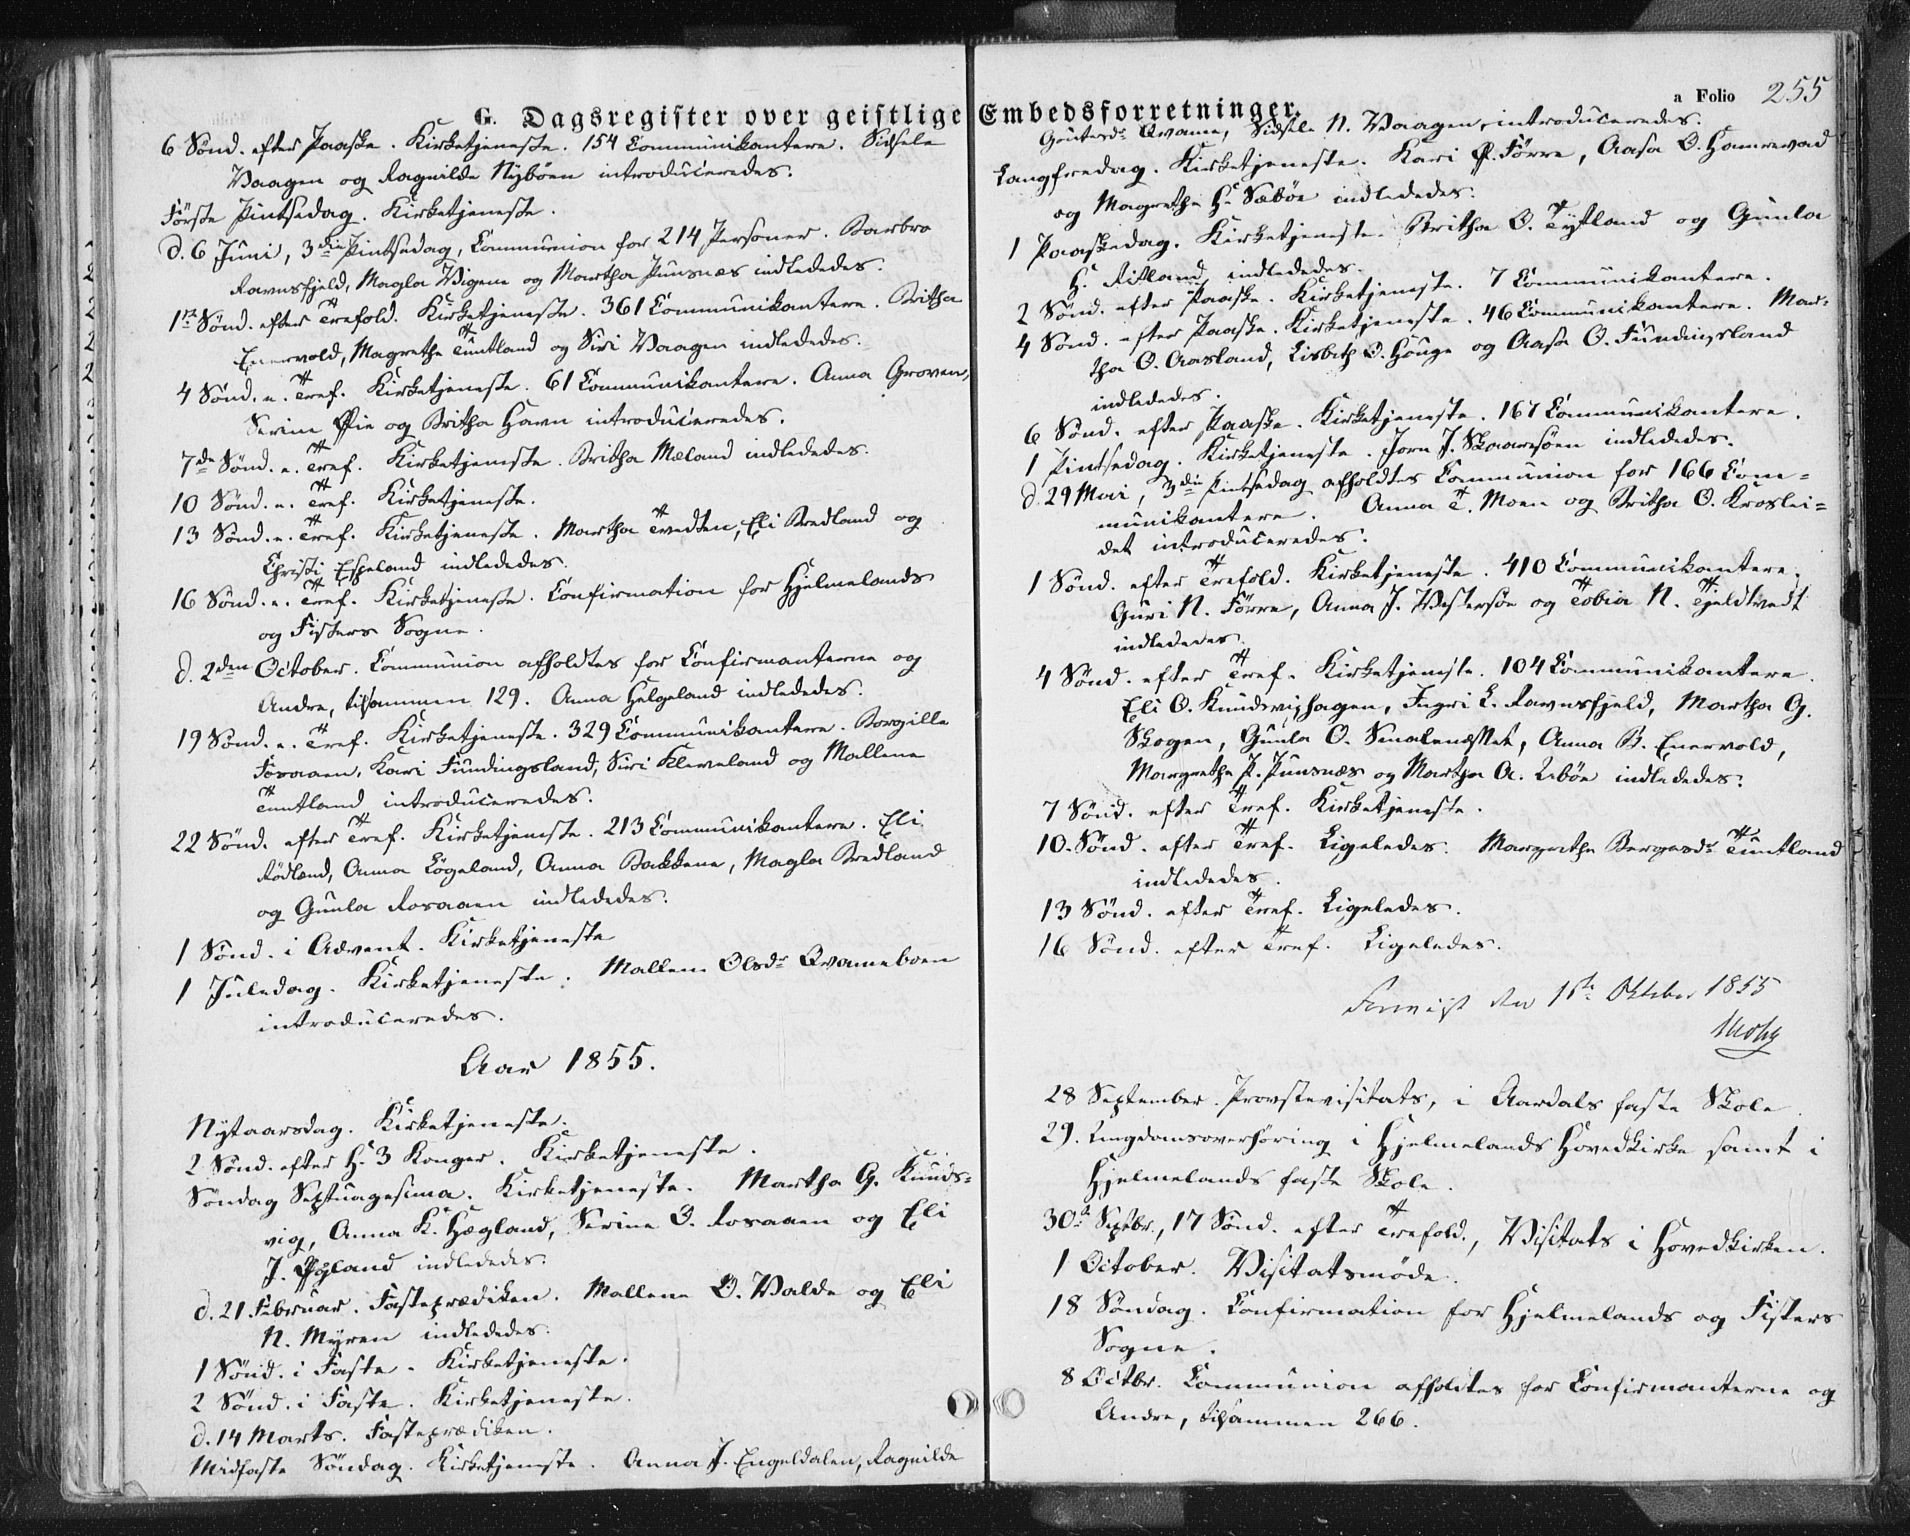 G. Dagsregister over geistlige Embedsforretninger.
a Folio 255
6 Sønd. efter Paaske. Kirketjeneste. 154 Communikantere. Sidsele
Vaagen og Ragnilde Nybøen introduceredes.
Første Pintsedag. Kirketjeneste.
d. 6 Juni, 3die Pintsedag, Communion for 214 Personer. Barbro
Ravnsfjeld, Magla Vigene og Martha Puusnæs indlededes.
1ste Sønd. efter Trefold. Kirketjeneste. 361 Communikantere. Britha
Enervold, Magrethe Tuntland og Siri Vaagen indlededes.
4 Sønd. e. Tref. Kirketjeneste. 61 Communikantere. Anna Groven,
Serine Øie og Britha Havn introduceredes.
7de Sønd. e. Tref. Kirketjeneste. Britha Mæland indlededes.
10 Sønd. e. Tref. Kirketjeneste.
13 Sønd. e. Tref. Kirketjeneste. Martha Tvedten, Eli Bredland og
Christi Espeland indlededes.
16 Sønd. e. Tref. Kirketjeneste. Confirmation for Hjelmelands
og Fisters Sogne.
d. 2den October. Communion afholdtes for Confirmanterne og
Andre, tilsammen 129. Anna Helgeland indlededes.
19 Sønd. e. Tref. Kirketjeneste. 329 Communikantere. Borgille
Fosaaen, Kari Fundingsland, Siri Kleveland og Mallene
Tuntland introduceredes.
22 Sønd. efter Tref. Kirketjeneste. 213 Communikantere. Eli
Rødland, Anna Løgeland, Anna Bakkene, Magla Bredland
og Gunla Rosaaen indlededes.
1 Sønd. i Advent. Kirketjeneste
1 Juledag. Kirketjeneste. Mallene Olsdr Qvameboen
introduceredes.
Aar 1855.
Nytaarsdag. Kirketjeneste.
2 Sønd. efter H. 3 Konger. Kirketjeneste.
Søndag Septuagesima. Kirketjeneste. Martha G. Knuds-
vig, Anna K. Hægland, Serine O. Rosaaen og Eli
J. Øgland indlededes.
d. 21 Februar. Fasteprædiken. Mallene O. Valde og Eli
N. Myren indlededes.
1 Sønd. i Faste. Kirketjeneste.
2 Sønd. i Faste. Kirketjeneste.
d. 14 Marts. Fasteprædiken.
Midfaste Søndag. Kirketjeneste. Anna J. Engeldalen, Ragnilde
Gautesdr Qvame, Sidsele N. Vaagen, introduceredes.
Langfredag. Kirketjeneste. Kari P. Førre, Aasa O. Hamrevad
og Magrethe H. Sæbøe indlededes.
1 Paaskedag. Kirketjeneste. Britha O. Tytland og Gunla
H. Ritland indlededes.
2 Sønd. efter Paaske. Kirketjeneste. 7 Communikantere.
4 Sønd. efter Paaske. Kirketjeneste. 46 Communikantere. Mar-
tha O. Aasland, Lisbeth O. Houge og Aasa O. Fundingsland
indlededes.
6 Sønd. efter Paaske. Kirketjeneste. 167 Communikantere.
1 Pintsedag. Kirketjeneste. Joren J. Skaaresøen indlededes.
d. 29 Mai, 3die Pintsedag afholdtes Communion for 166 Com-
munikantere. Anna T. Moen og Britha O. Kroslei-
det introduceredes.
1 Sønd. efter Trefold. Kirketjeneste. 410 Communikantere.
Guri N. Førre, Anna J. Vestersøe og Tobia N. Tjeldtvedt
indlededes.
4 Sønd. efter Tref. Kirketjeneste. 104 Communikantere.
Eli O. Knudsvighagen, Ingri L. Ravnsfjeld, Martha G.
Skogen, Gunla O. Smalenæsset, Anna B. Enervold,
Margrethe P. Puusnæs og Martha A. Lebøe indlededes.
7 Sønd. efter Tref. Kirketjeneste.
10. Sønd. efter Tref. Ligeledes. Margrethe Borgesdr Tuntland
indlededes.
13 Sønd. efter Tref. Ligeledes.
16 Sønd. efter Tref. Ligeledes.
Foreviist den 1ste Oktober 1855
28 September. Provstevisitats, i Aardals faste Skole.
29. Ungdomsoverhøring i Hjelmelands Hovedkirke samt i
Hjelmelands faste Skole.
30te Septbr., 17 Sønd. efter Trefold., Visitats i Hovedkirken.
1 October. Visitatsmøde.
18 Søndag. Confirmation for Hjelmelands og Fisters
Sogne.
8 Octbr. Communion afholdtes for Confirmanterne og
Andre, tilsammen 266.